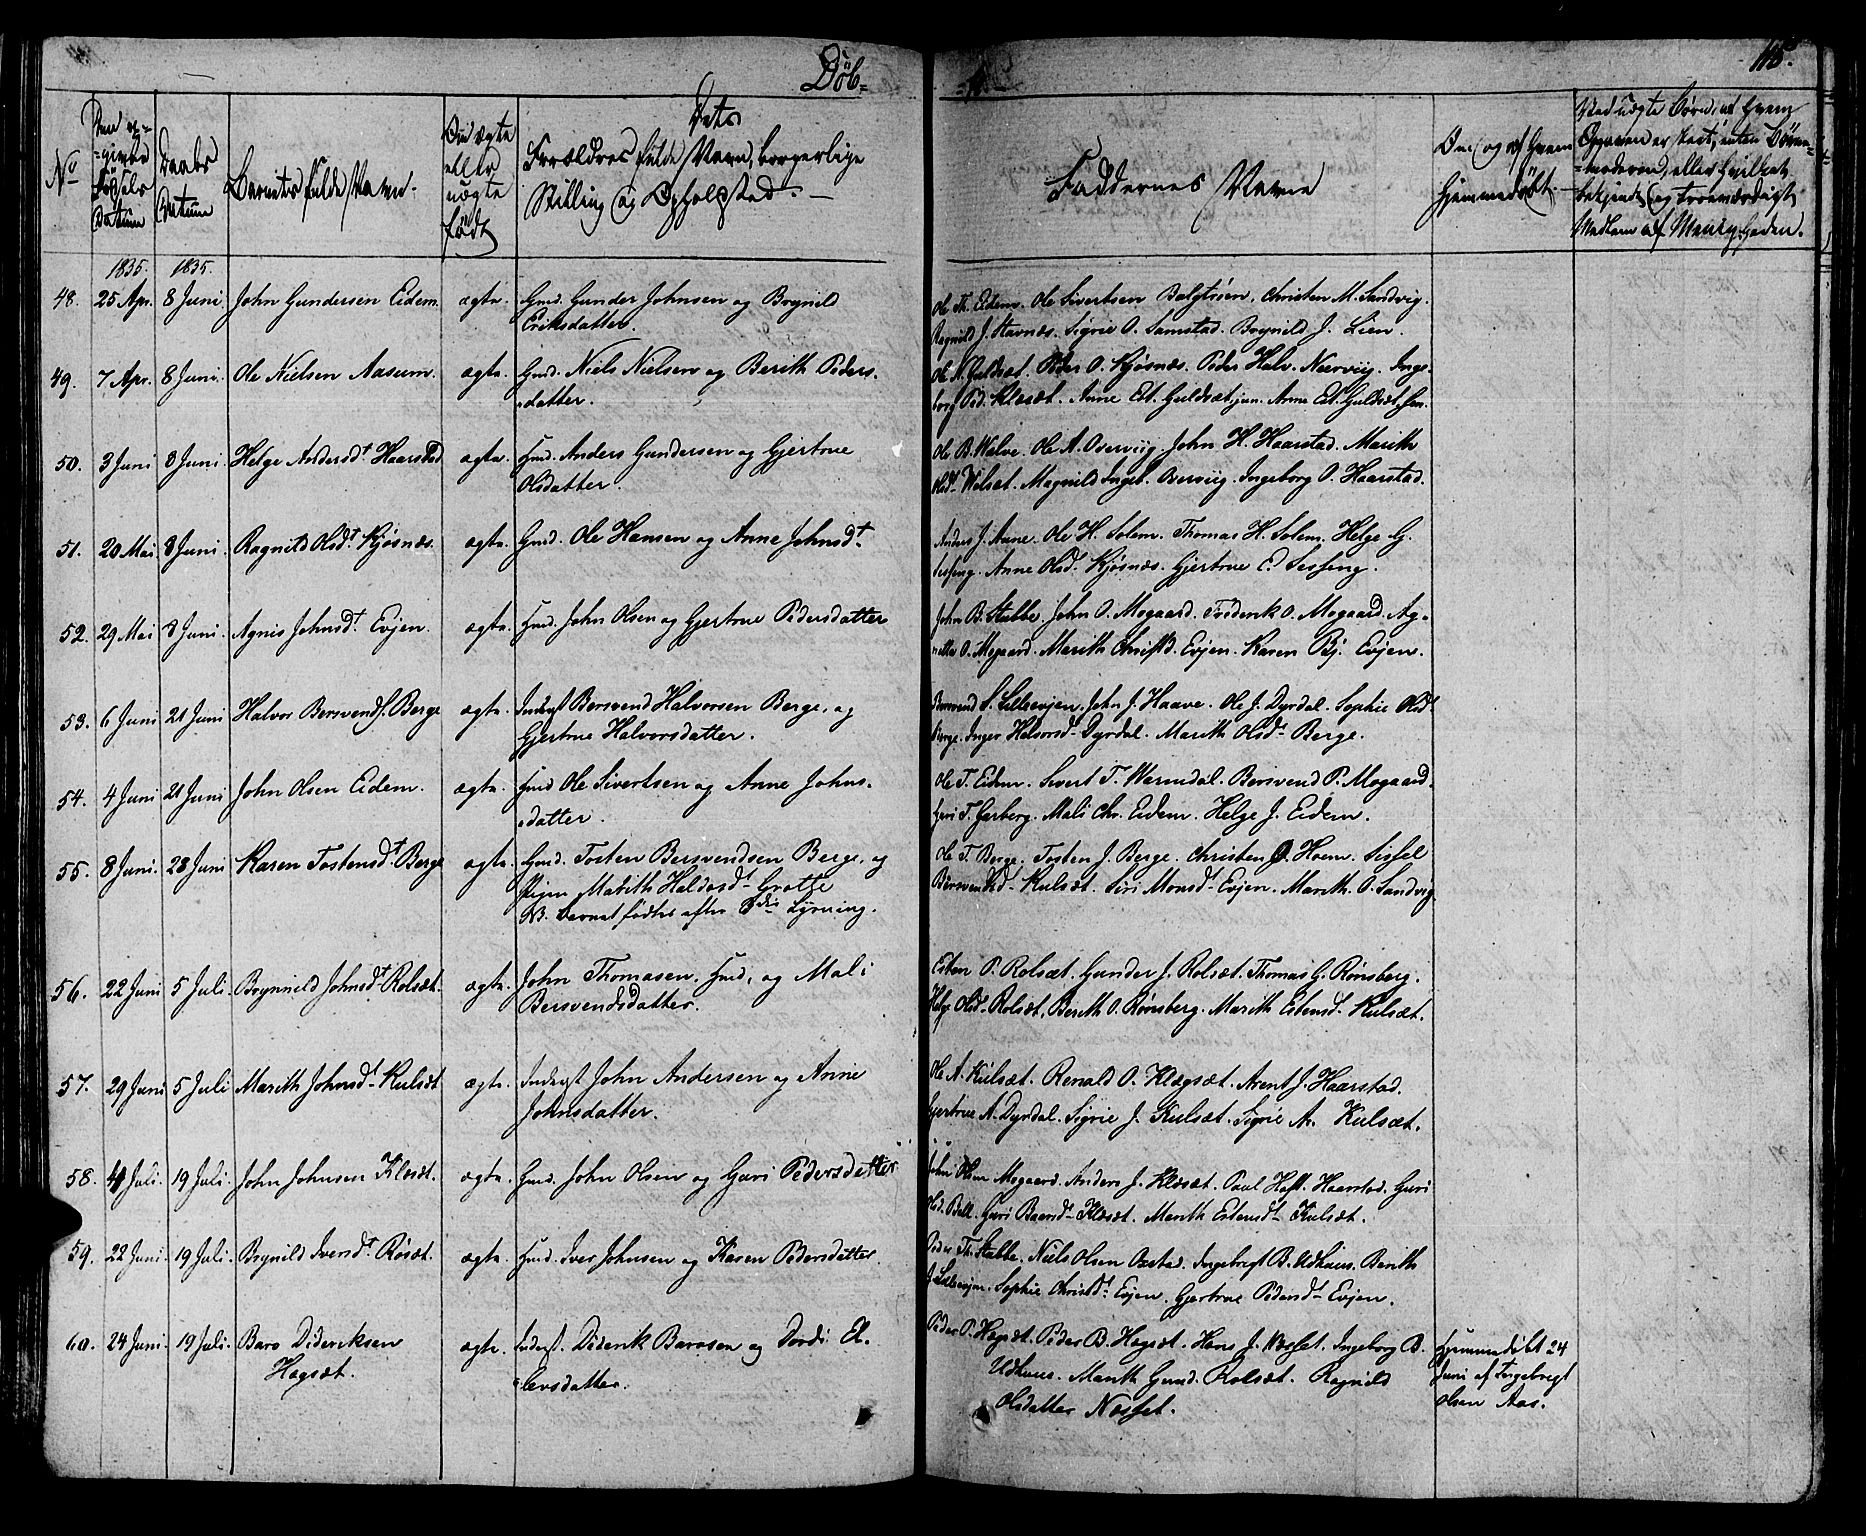 Döb=
115.
No
Daabs
Datum
Barnets fulde Navn.
Om ægte
eller
uægte
født
Dets
Forældres fulde Navn, borgerlige
Stilling og Opholdsted.
Faddernes Navne
Om og af hvem
hjemmedøbt.
1835. 1835.
48. 25 Apr. 8 Juni John Gundersen Eidem. ægte. Gmd. Gunder Johnsen og Brynild
Eriksdatter.
Ole Th. Eidem. Ole Sivertsen Christen M. Sandvig.
Ragnild J. Stavnæs. Sigrie O. Samstad. Brynild J. Lien.
49. 7 Apr. 8 Juni. Ole Nielsen Aasum. ægte. Gmd. Niels Nielsen og Berith Peders-
datter.
Ole N. Guldsæt. Peder O. Kjøsnæs. Peder Halv. Nærviig. Inge-
borg Ped. Klæsæt. Anne Est. Guldsæt jun. Anne Est. Guldsæt sen.
50. 3 Juni 8 Juni. Helge Andersdt Haarstad ægte. Hmd. Anders Gundersen og Gjertrue
Olsdatter.
Ole B. Welve. Ole A. Overviig John H. Haarstad. Marith
Olsdt Welsæt. Magnild Ingebr. Overviig. Ingeborg O. Haarstad.
51. 20 Mai 8 Juni. Ragnild Olsdt Kjøsnæs. ægte. Gmd. Ole Hansen og Anne Johnsdt
Anders J. Aune. Ole H. Solem. Thomas H. Solem. Helge G.
Sesseng. Anne Olsd. Kjøsnæs. Gjertrue E. Sesseng.
52. 29 Mai 8 Juni. Agnis Johnsdt Evjen. ægte. Hmd. John Olsen og Gjertrue Pedersdatter
John B. Stubbe. John O. Mogaard. Frederik O. Mogaard. Ag-
nette O. Mogaard. Marith Christd. Evjen. Karen Bj. Evjen.
53. 6 Juni 21 Juni Halvor Bersvends. Berge ægte. Inderst Bersvend Halvorsen Berge, og
Gjertrue Halvorsdatter.
Bersvend S. Lilleevjen. John J. Haave. Ole J. Dyrdal. Sophie Olsdt
Berge. Inger Halvorsdt Dyrdal. Marith Olsdt Berge.
54. 4 Juni 21 Juni John Olsen Eidem. ægte. Hmd Ole Sivertsen og Anne Johns-
datter.
Ole T. Eidem. Sivert T. Warmdal. Bersvend P. Mogaard.
Guri T. Garberg. Mali Chr. Eidem. Helge J. Eidem.
55. 8 Juni. 28 Juni Karen Tostensdt Berge ægte. Gmd. Tosten Bersvendsen Berge, og
Pigen Marith Haldosdt Grøtte
NB. Barnet fødtes efter 3die Lysning.
Ole T. Berge. Tosten J. Berge. Christen O. Hoem. Sissel
Bersvendsd. Kulsæt. Siri Monsdt Evjen. Marith O. Sandvig
56. 22 Juni 5 Juli. Brynnild Johnsdt Rolsæt. ægte. John Thomasen. Hmd, og Mali
Bersvendsdatter.
Esten P. Rolsæt. Gunder J. Rolsæt. Thomas G. Rønsberg.
Helge Olsdt Rolsæt. Berith O. Rønsberg. Marith Estensdt Kulsæt.
57. 29 Juni 5 Juli Marith Johnsdt Kulsæt ægte. Inderst John Andersen og Anne
Johnsdatter.
Ole A. Kulsæt. Renald O. Klægsæt. Arent J. Haarstad.
Gjertrue A. Dyrdal. Sigrie J. Kulsæt. Sigrie A. Kulsæt.
58. 4 Juli. 19 Juli. John Johnsen Klæsæt. ægte. Gmd. John Olsen og Guri Pedersdatter
John Olsen Mogaard. Anders J. Klæsæt. Paul Haft. Haarstad. Guri
Olsd. Ball. Guri Baarsdt Klæsæt. Marith Estensdt Kulsæt.
59. 22 Juni. 19 Juli. Brynild Iversdt Røsæt. ægte. Hmd. Iver Johnsen og Karen Pedersdatter.
Peder Th. Stubbe. Niels Olsen Ingebregt B. Udhuus. Berith
J. Lilleevjen. Sophie Christdt Evjen. Gjertrue Pedersdt Evjen.
60. 24 Juni. 19 Juli. Baro Dideriksen
Hagsæt.
ægte. Inderst. Diderik Barosen og Dordi El-
levsdatter.
Peder P. Hagsæt. Peder B. Hagsæt. Hans J. Næsset. Ingeborg B.
Udhuus. Marith Gund. Rolsæt. Ragnild
Olsdatter Næsset.
Hjemmedøbt 24
Juni af Ingebregt
Olsen Aas.